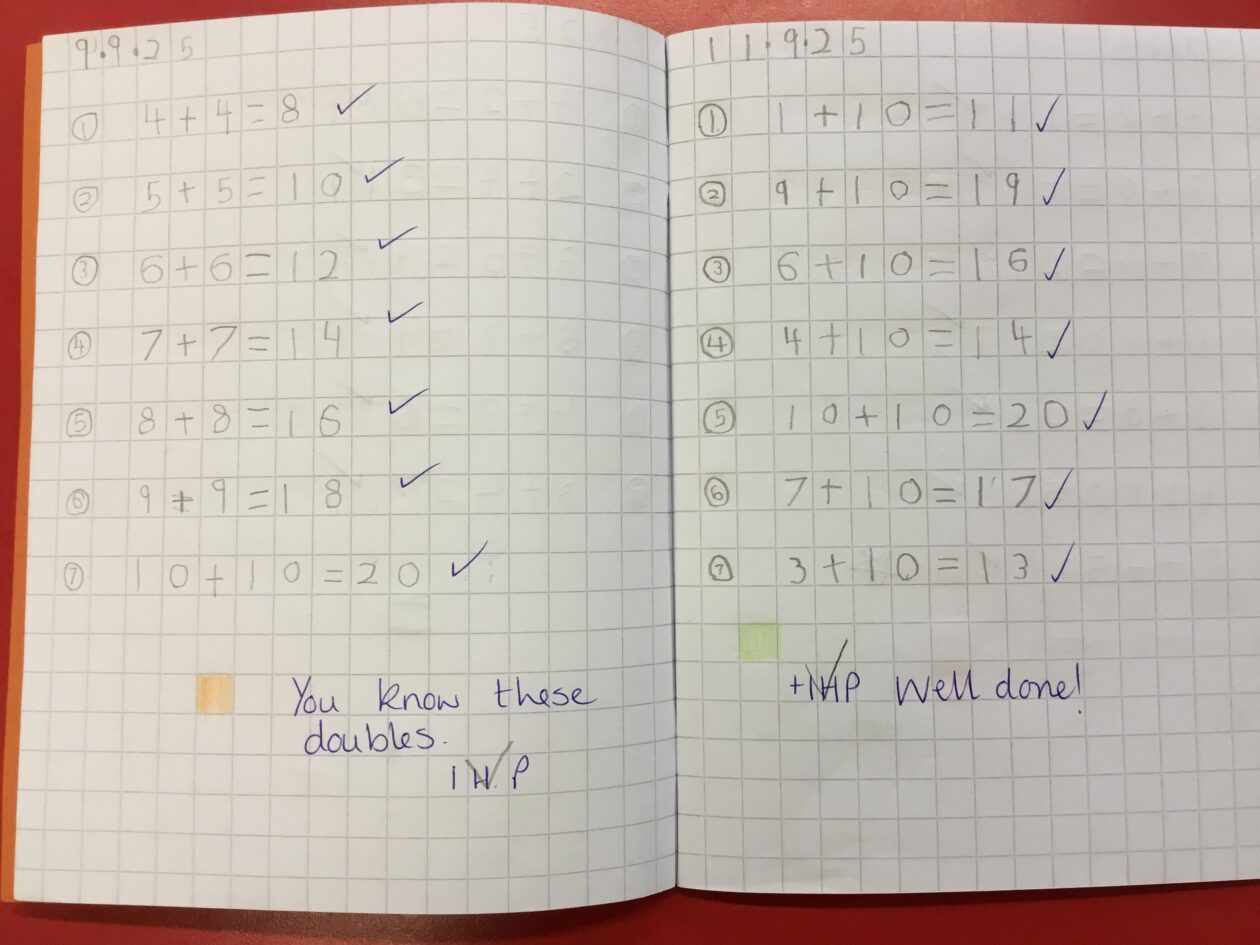 9.9.25
① 4+4=8 ✓
② 5+5=10 ✓
③ 6+6=12 ✓
④ 7+7=14 ✓
⑤ 8+8=16 ✓
⑥ 9+9=18 ✓
⑦ 10+10=20 ✓
You know these
doubles.
1 H.P
11.9.25
① 1+10=11 ✓
② 9+10=19 ✓
③ 6+10=16 ✓
④ 4+10=14 ✓
⑤ 10+10=20 ✓
⑥ 7+10=17 ✓
⑦ 3+10=13 ✓
+1HP Well done!